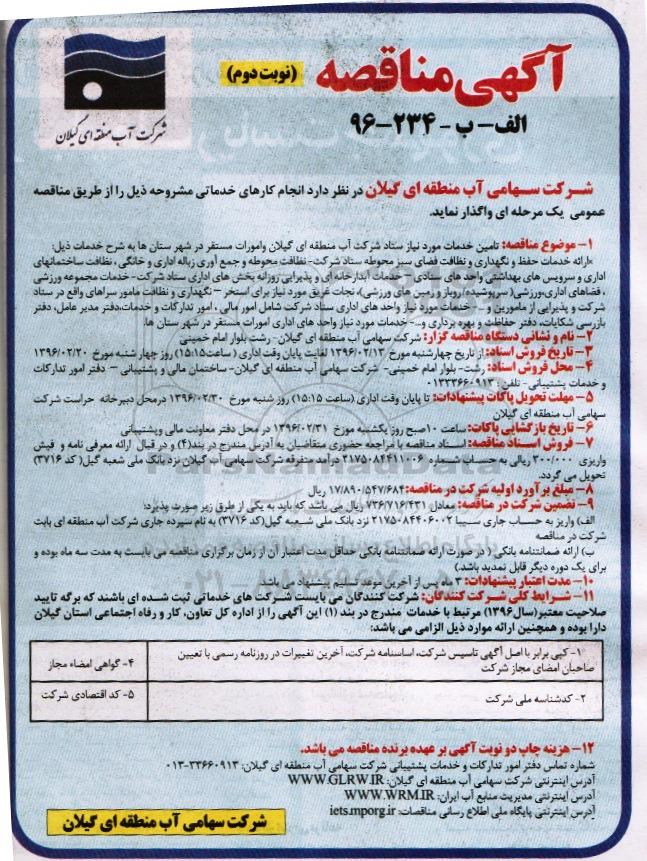 آگهی مناقصه
(نوبت دوم)
الف- ب - ۲۳۴-۹۶
شرکت آب منطقه ای گیلان
شرکت سهامی آب منطقه ای گیلان در نظر دارد انجام کارهای خدماتی مشروحه ذیل را از طریق مناقصه
عمومی یک مرحله ای واگذار نماید.
۱- موضوع مناقصه: تامین خدمات مورد نیاز ستاد شرکت آب منطقه ای گیلان وامورات مستقر در شهر ستان ها به شرح خدمات ذیل:
*ارائه خدمات حفظ و نگهداری و نظافت فضای سبز محوطه ستاد شرکت- نظافت محوطه و جمع آوری زباله اداری و خانگی، نظافت ساختمانهای
اداری و سرویس های بهداشتی واحد های ستادی - خدمات آبدارخانه ای و پذیرایی روزانه بخش های اداری ستاد شرکت- خدمات مجموعه ورزشی
، فضاهای اداری،ورزشی(سرپوشیده/روباز و زمین های ورزشی)، نجات غریق مورد نیاز برای استخر – نگهداری و نظافت مامور سراهای واقع در ستاد
شرکت و پذیرایی از مامورین و... - خدمات مورد نیاز واحد های اداری ستاد شرکت شامل امور مالی ، امور تدارکات و خدمات،دفتر مدیر عامل، دفتر
بازرسی شکایات، دفتر حفاظت و بهره برداری و...- خدمات مورد نیاز واحد های اداری امورات مستقر در شهر ستان ها.
۲- نام و نشانی دستگاه مناقصه گزار: شرکت سهامی آب منطقه ای گیلان- رشت بلوار امام خمینی
۳- تاریخ فروش اسناد: از تاریخ چهارشنبه مورخ ۱۳۹۶/۰۲/۱۳ لغایت پایان وقت اداری (ساعت۱۵:۱۵) روز چهار شنبه مورخ ۱۳۹۶/۰۲/۲۰
۴- محل فروش اسناد: رشت- بلوار امام خمینی- شرکت سهامی آب منطقه ای گیلان- ساختمان مالی و پشتیبانی – دفتر امور تدارکات
و خدمات پشتیبانی- تلفن: ۰۱۳۳۳۶۶۰۹۱۳
۵- مهلت تحویل پاکات پیشنهادات: تا پایان وقت اداری (ساعت ۱۵:۱۵) روز شنبه مورخ ۱۳۹۶/۰۲/۳۰ درمحل دبیرخانه حراست شرکت
سهامی آب منطقه ای گیلان
۶- تاریخ بازگشایی پاکات: ساعت ۱۰صبح روز یکشنبه مورخ ۱۳۹۶/۰۲/۳۱ در محل دفتر معاونت مالی وپشتیبانی
۷- فروش اسناد مناقصه: اسناد مناقصه با مراجعه حضوری متقاضیان به آدرس مندرج در بند(۴) و در قبال ارائه معرفی نامه و فیش
واریزی ۳۰۰/۰۰۰ ریالی به حساب شماره ۲۱۷۵۰۸۴۴۱۱۰۰۶ درآمد متفرقه شرکت سهامی آب گیلان نزد بانک ملی شعبه گیل(کد ۳۷۱۶)
تحویل می گردد.
۸- مبلغ برآورد اولیه شرکت در مناقصه:۱۷/۸۹۰/۵۴۷/۶۸۴ ریال
۹- تضمین شرکت در مناقصه: معادل ۷۳۶/۷۱۶/۴۳۱ ریال می باشد که باید به یکی از طرق زیر صورت پذیرد:
الف) واریز به حساب جاری سیبا ۲۱۷۵۰۸۴۴۰۶۰۰۲ نزد بانک ملی شعبه گیل(کد ۳۷۱۶) به نام سپرده جاری شرکت آب منطقه ای بابت
شرکت در مناقصه
ب) ارائه ضمانتنامه بانکی( در صورت ارائه ضمانتنامه بانکی حداقل مدت اعتبار آن از زمان برگزاری مناقصه می بایست به مدت سه ماه بوده و
برای یک دوره دیگر قابل تمدید باشد.)
۱۰- مدت اعتبار پیشنهادات: ۳ ماه پس از آخرین موعد تسلیم پیشنهاد می باشد
۱۱- شرایط کلی شرکت کنندگان: شرکت کنندگان می بایست شرکت های خدماتی ثبت شده ای باشند که برگه تایید
صلاحیت معتبر(سال۱۳۹۶) مرتبط با خدمات مندرج در بند (۱) این آگهی را از اداره کل تعاون، کار و رفاه اجتماعی استان گیلان
دارا بوده و همچنین ارائه موارد ذیل الزامی می باشد:
۱- کپی برابر با اصل آگهی تاسیس شرکت، اساسنامه شرکت، آخرین تغییرات در روزنامه رسمی با تعیین
صاحبان امضای مجاز شرکت
۴- گواهی امضاء مجاز
۲- کدشناسه ملی شرکت
۵- کد اقتصادی شرکت
۱۲- هزینه چاپ دو نوبت آگهی بر عهده برنده مناقصه می باشد.
شماره تماس دفتر امور تدارکات و خدمات پشتیبانی شرکت سهامی آب منطقه ای گیلان: ۳۳۶۶۰۹۱۳-۰۱۳
آدرس اینترنتی شرکت سهامی آب منطقه ای گیلان: WWW.GLRW.IR
آدرس اینترنتی مدیریت منابع آب ایران: WWW.WRM.IR
آدرس اینترنتی پایگاه ملی اطلاع رسانی مناقصات: iets.mporg.ir
شرکت سهامی آب منطقه ای گیلان